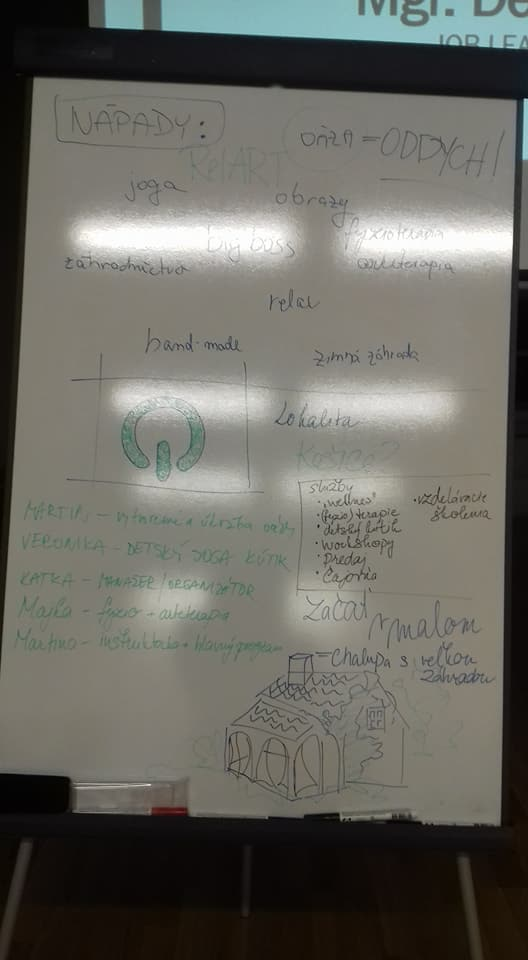 Mgr. De
JOB LEA
NÁPADY:
OÁZA = ODDYCH!
RelART
joga
obrazy
big boss
fyzioterapia
záhradníctvo
arteterapia
relax
hand-made
zimná záhrada
Lokalita
Košice?
služby
• wellness
• (fyzio) terapie
• detský kútik
• workshopy
• Predaj
• Čajovňa
• vzdelávacie
školenia
MARTIN - vytvorenie a údržba
VERONIKA - DETSKÝ JOGA KÚTIK
KATKA - MANAŽER/ORGANIZÁTOR
Majka - fyzio + arteterapia
Martina - inštruktorka + hlavný program
Začať
v malom
= Chalupa s veľkou
záhradou